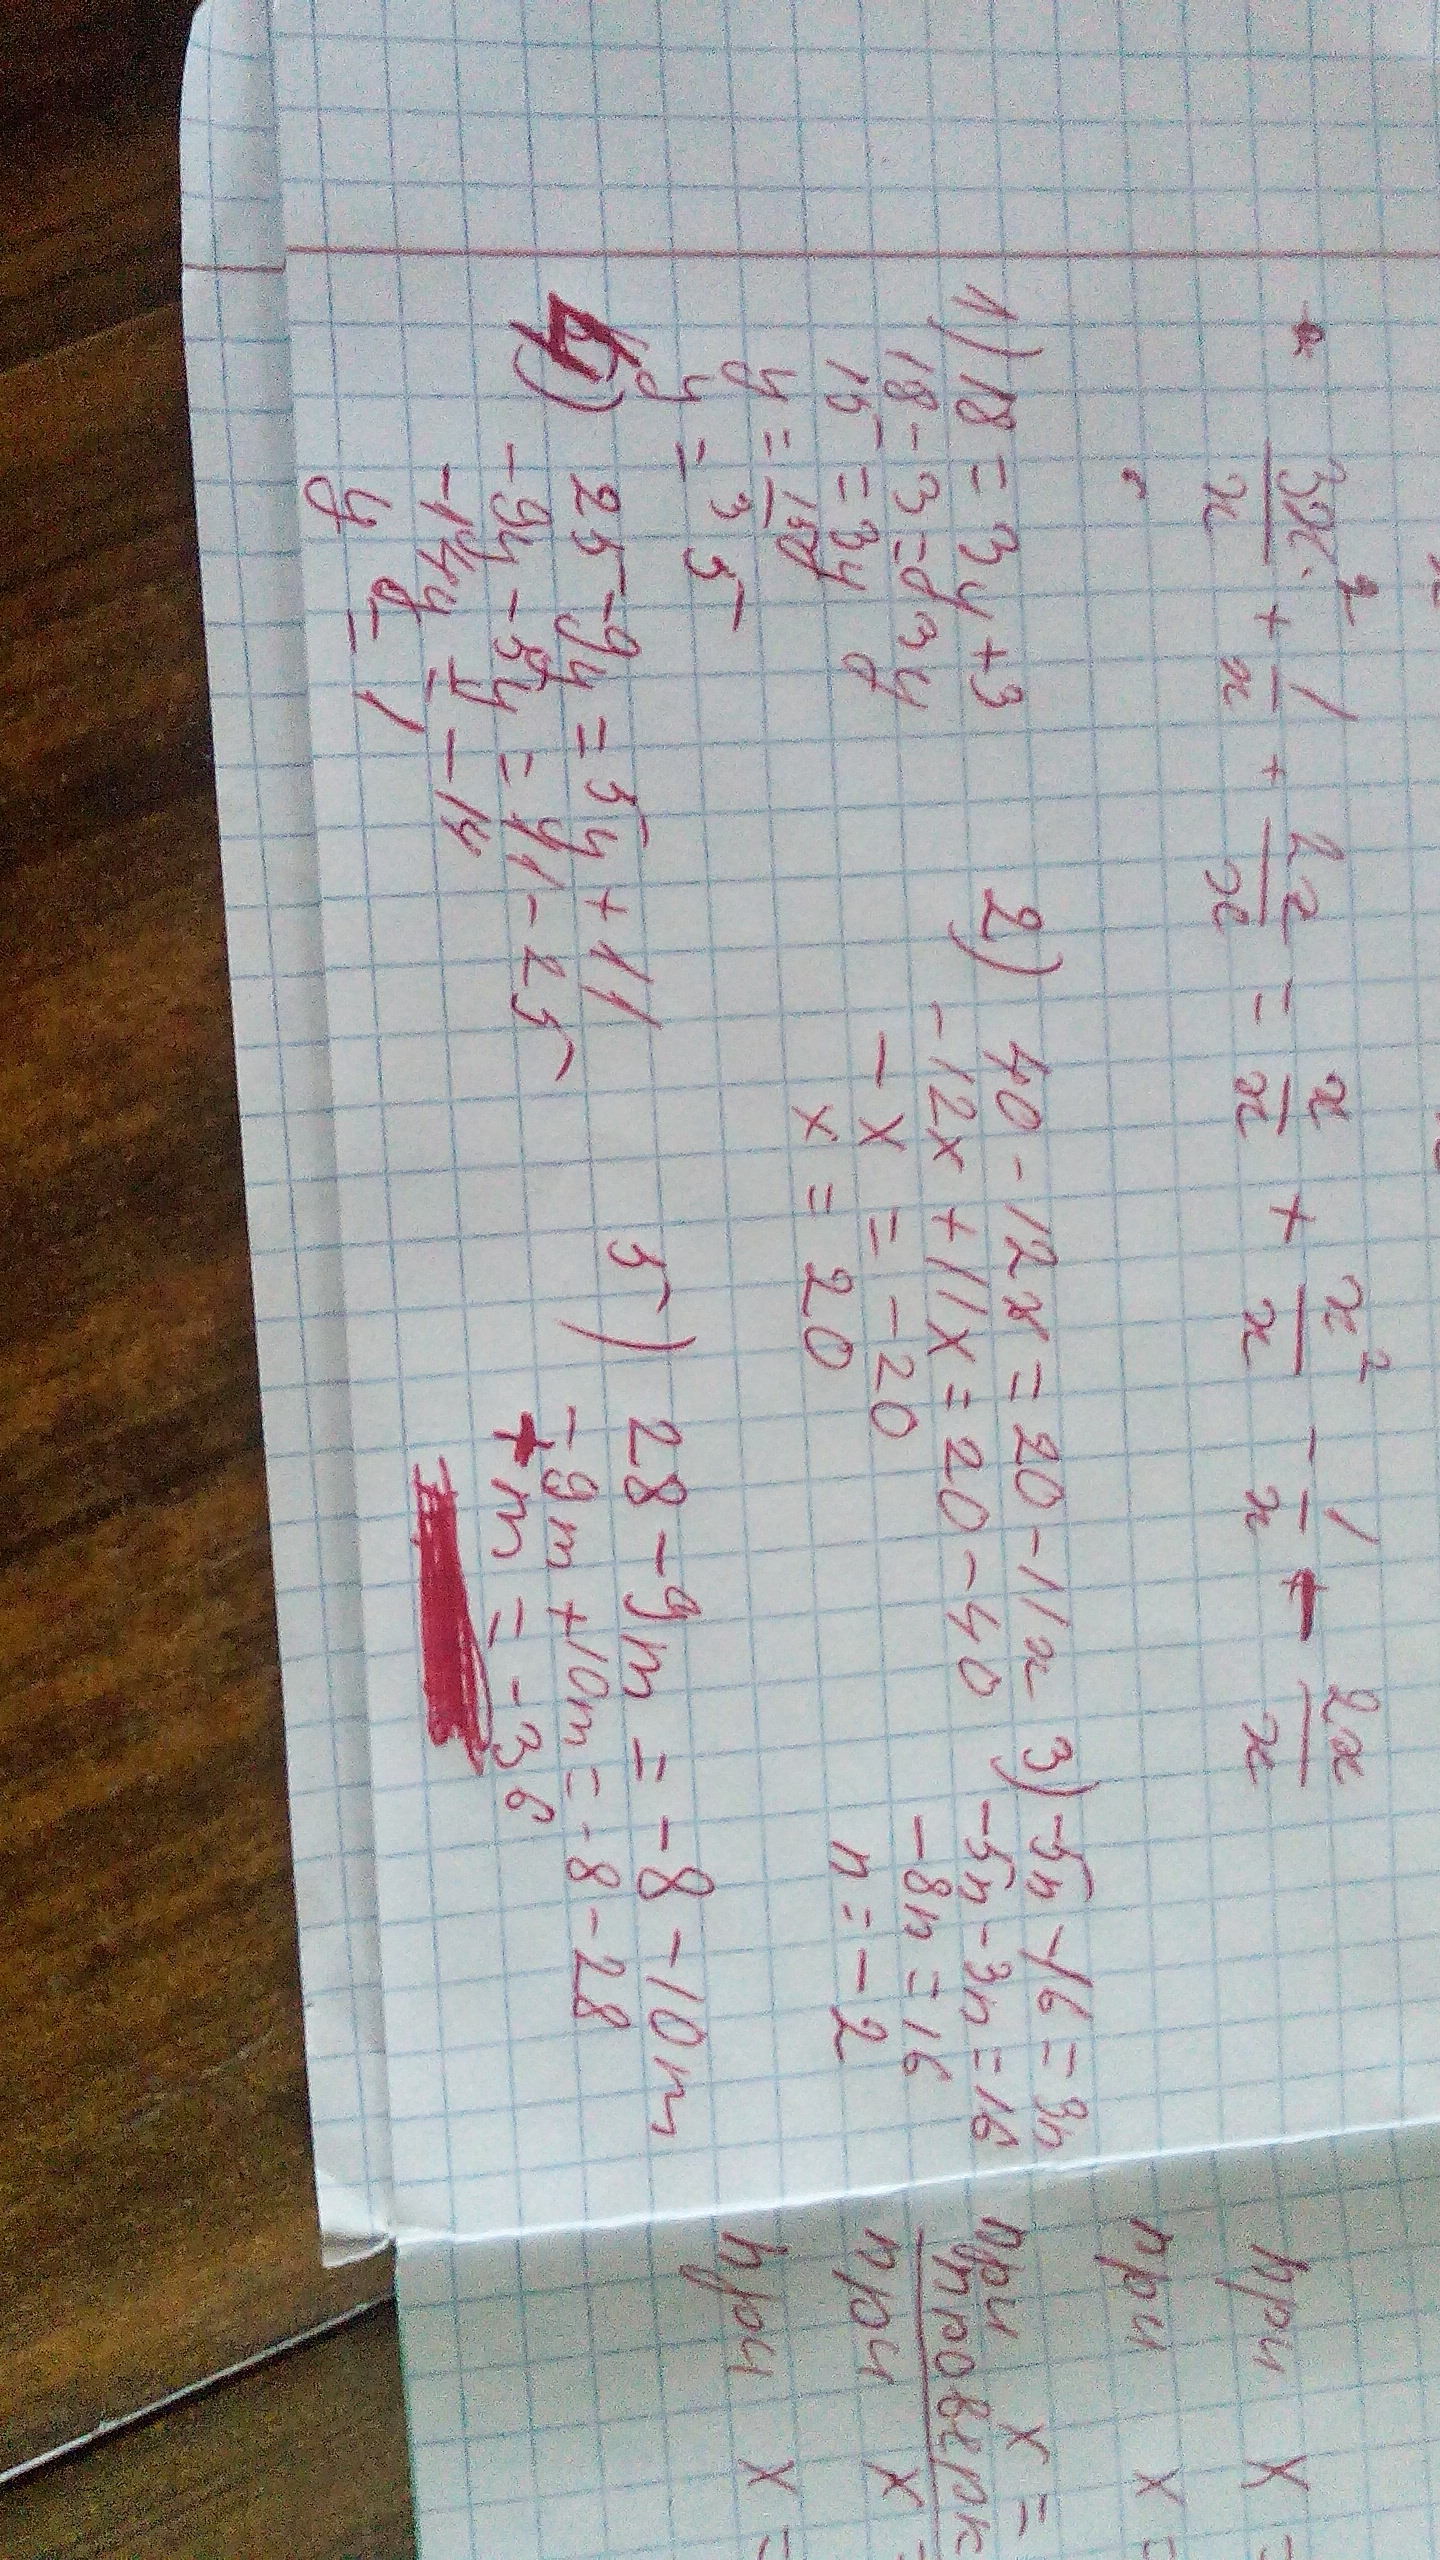 3x²/x + 1/x + 2x/x = x/x + x²/x - 1/x + 2x/x
1) 18 = 3y + 3
18 - 3 = 3y
15 = 3y
y = 15/3
y = 5
2) 40 - 12x = 20 - 11x
-12x + 11x = 20 - 40
-x = -20
x = 20
3) -5n - 16 = 3n
-5n - 3n = 16
-8n = 16
n = -2
4) 25 - 9y = 5y + 11
-9y - 5y = 11 - 25
-14y = -14
y = 1
5) 28 - 9m = -8 - 10m
-9m + 10m = -8 - 28
m = -36
при x =
при x =
при x =
проверк
при x =
при x =